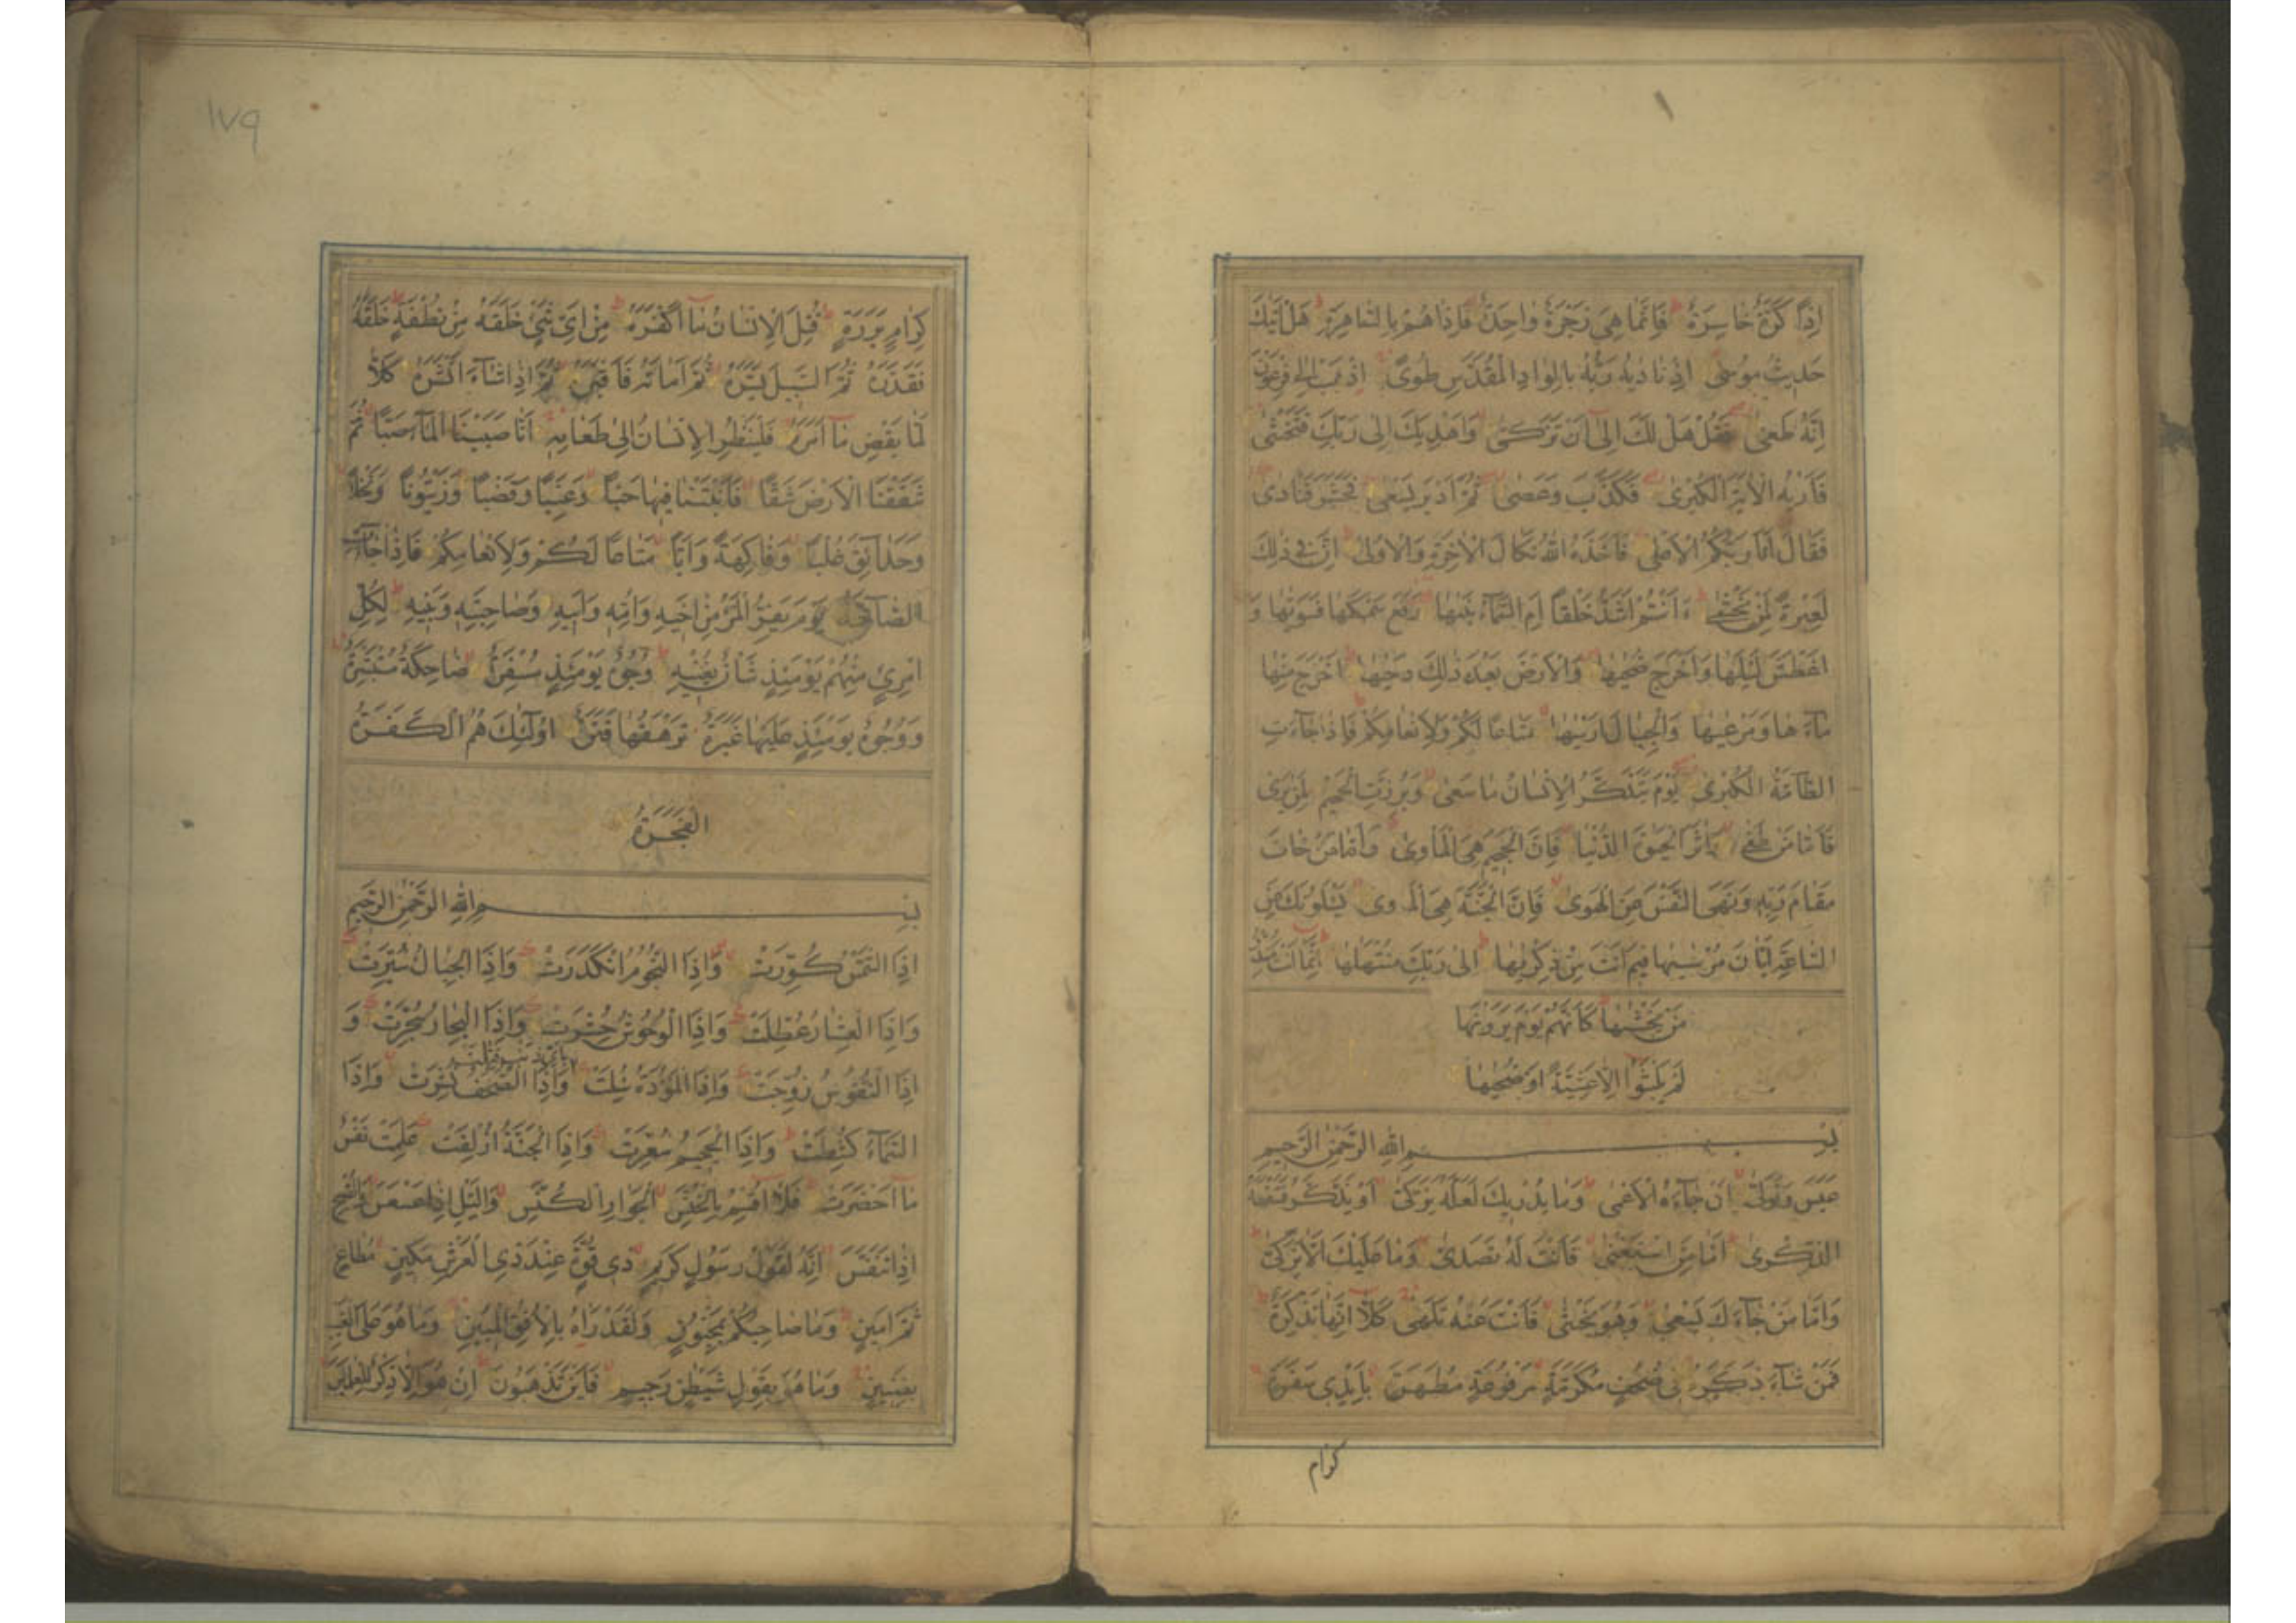 اِذًا كَرَّةٌ خَاسِرَةٌ فَاِنَّمَا هِىَ زَجْرَةٌ وَاحِدَةٌ فَاِذَا هُمْ بِالسَّاهِرَةِ هَلْ اَتٰيكَ
حَدِيثُ مُوسٰى اِذْ نَادٰيهُ رَبُّهُ بِالْوَادِ الْمُقَدَّسِ طُوًى اِذْهَبْ اِلٰى فِرْعَوْنَ
اِنَّهُ طَغٰى فَقُلْ هَلْ لَكَ اِلٰى اَنْ تَزَكّٰى وَاَهْدِيَكَ اِلٰى رَبِّكَ فَتَخْشٰى
فَاَرٰيهُ الْاٰيَةَ الْكُبْرٰى فَكَذَّبَ وَعَصٰى ثُمَّ اَدْبَرَ يَسْعٰى فَحَشَرَ فَنَادٰى
فَقَالَ اَنَا رَبُّكُمُ الْاَعْلٰى فَاَخَذَهُ اللّٰهُ نَكَالَ الْاٰخِرَةِ وَالْاُولٰى اِنَّ فِى ذٰلِكَ
لَعِبْرَةً لِمَنْ يَخْشٰى ءَاَنْتُمْ اَشَدُّ خَلْقًا اَمِ السَّمَآءُ بَنٰيهَا رَفَعَ سَمْكَهَا فَسَوّٰيهَا وَ
اَغْطَشَ لَيْلَهَا وَاَخْرَجَ ضُحٰيهَا وَالْاَرْضَ بَعْدَ ذٰلِكَ دَحٰيهَا اَخْرَجَ مِنْهَا
مَآءَهَا وَمَرْعٰيهَا وَالْجِبَالَ اَرْسٰيهَا مَتَاعًا لَكُمْ وَلِاَنْعَامِكُمْ فَاِذَا جَآءَتِ
الطَّآمَّةُ الْكُبْرٰى يَوْمَ يَتَذَكَّرُ الْاِنْسَانُ مَا سَعٰى وَبُرِّزَتِ الْجَحِيمُ لِمَنْ يَرٰى
فَاَمَّا مَنْ طَغٰى وَاٰثَرَ الْحَيٰوةَ الدُّنْيَا فَاِنَّ الْجَحِيمَ هِىَ الْمَاْوٰى وَاَمَّا مَنْ خَافَ
مَقَامَ رَبِّهِ وَنَهَى النَّفْسَ عَنِ الْهَوٰى فَاِنَّ الْجَنَّةَ هِىَ الْمَاْوٰى يَسْئَلُونَكَ عَنِ
السَّاعَةِ اَيَّانَ مُرْسٰيهَا فِيمَ اَنْتَ مِنْ ذِكْرٰيهَا اِلٰى رَبِّكَ مُنْتَهٰيهَا اِنَّمَا اَنْتَ مُنْذِرُ
مَنْ يَخْشٰيهَا كَاَنَّهُمْ يَوْمَ يَرَوْنَهَا
لَمْ يَلْبَثُوا اِلَّا عَشِيَّةً اَوْ ضُحٰيهَا
بِسْمِ اللّٰهِ الرَّحْمٰنِ الرَّحِيمِ
عَبَسَ وَتَوَلّٰى اَنْ جَآءَهُ الْاَعْمٰى وَمَا يُدْرِيكَ لَعَلَّهُ يَزَّكّٰى اَوْ يَذَّكَّرُ فَتَنْفَعَهُ
الذِّكْرٰى اَمَّا مَنِ اسْتَغْنٰى فَاَنْتَ لَهُ تَصَدّٰى وَمَا عَلَيْكَ اَلَّا يَزَّكّٰى
وَاَمَّا مَنْ جَآءَكَ يَسْعٰى وَهُوَ يَخْشٰى فَاَنْتَ عَنْهُ تَلَهّٰى كَلَّا اِنَّهَا تَذْكِرَةٌ
فَمَنْ شَآءَ ذَكَرَهُ فِى صُحُفٍ مُكَرَّمَةٍ مَرْفُوعَةٍ مُطَهَّرَةٍ بِاَيْدِى سَفَرَةٍ
كرام
١٧٩
كِرَامٍ بَرَرَةٍ قُتِلَ الْاِنْسَانُ مَا اَكْفَرَهُ مِنْ اَىِّ شَىْءٍ خَلَقَهُ مِنْ نُطْفَةٍ خَلَقَهُ
فَقَدَّرَهُ ثُمَّ السَّبِيلَ يَسَّرَهُ ثُمَّ اَمَاتَهُ فَاَقْبَرَهُ ثُمَّ اِذَا شَآءَ اَنْشَرَهُ كَلَّا
لَمَّا يَقْضِ مَا اَمَرَهُ فَلْيَنْظُرِ الْاِنْسَانُ اِلٰى طَعَامِهِ اَنَّا صَبَبْنَا الْمَآءَ صَبًّا ثُمَّ
شَقَقْنَا الْاَرْضَ شَقًّا فَاَنْبَتْنَا فِيهَا حَبًّا وَعِنَبًا وَقَضْبًا وَزَيْتُونًا وَنَخْلًا
وَحَدَآئِقَ غُلْبًا وَفَاكِهَةً وَاَبًّا مَتَاعًا لَكُمْ وَلِاَنْعَامِكُمْ فَاِذَا جَآءَتِ
الصَّآخَّةُ يَوْمَ يَفِرُّ الْمَرْءُ مِنْ اَخِيهِ وَاُمِّهِ وَاَبِيهِ وَصَاحِبَتِهِ وَبَنِيهِ لِكُلِّ
امْرِئٍ مِنْهُمْ يَوْمَئِذٍ شَاْنٌ يُغْنِيهِ وُجُوهٌ يَوْمَئِذٍ مُسْفِرَةٌ ضَاحِكَةٌ مُسْتَبْشِرَةٌ
وَوُجُوهٌ يَوْمَئِذٍ عَلَيْهَا غَبَرَةٌ تَرْهَقُهَا قَتَرَةٌ اُولٰٓئِكَ هُمُ الْكَفَرَةُ
الْفَجَرَةُ
بِسْمِ اللّٰهِ الرَّحْمٰنِ الرَّحِيمِ
اِذَا الشَّمْسُ كُوِّرَتْ وَاِذَا النُّجُومُ انْكَدَرَتْ وَاِذَا الْجِبَالُ سُيِّرَتْ
وَاِذَا الْعِشَارُ عُطِّلَتْ وَاِذَا الْوُحُوشُ حُشِرَتْ وَاِذَا الْبِحَارُ سُجِّرَتْ وَ
بِاَىِّ ذَنْبٍ قُتِلَتْ
اِذَا النُّفُوسُ زُوِّجَتْ وَاِذَا الْمَوْؤُدَةُ سُئِلَتْ وَاِذَا الصُّحُفُ نُشِرَتْ وَاِذَا
السَّمَآءُ كُشِطَتْ وَاِذَا الْجَحِيمُ سُعِّرَتْ وَاِذَا الْجَنَّةُ اُزْلِفَتْ عَلِمَتْ نَفْسٌ
مَا اَحْضَرَتْ فَلَا اُقْسِمُ بِالْخُنَّسِ الْجَوَارِ الْكُنَّسِ وَالَّيْلِ اِذَا عَسْعَسَ وَالصُّبْحِ
اِذَا تَنَفَّسَ اِنَّهُ لَقَوْلُ رَسُولٍ كَرِيمٍ ذِى قُوَّةٍ عِنْدَ ذِى الْعَرْشِ مَكِينٍ مُطَاعٍ
ثَمَّ اَمِينٍ وَمَا صَاحِبُكُمْ بِمَجْنُونٍ وَلَقَدْ رَاٰهُ بِالْاُفُقِ الْمُبِينِ وَمَا هُوَ عَلَى الْغَيْبِ
بِضَنِينٍ وَمَا هُوَ بِقَوْلِ شَيْطٰنٍ رَجِيمٍ فَاَيْنَ تَذْهَبُونَ اِنْ هُوَ اِلَّا ذِكْرٌ لِلْعَالَمِينَ